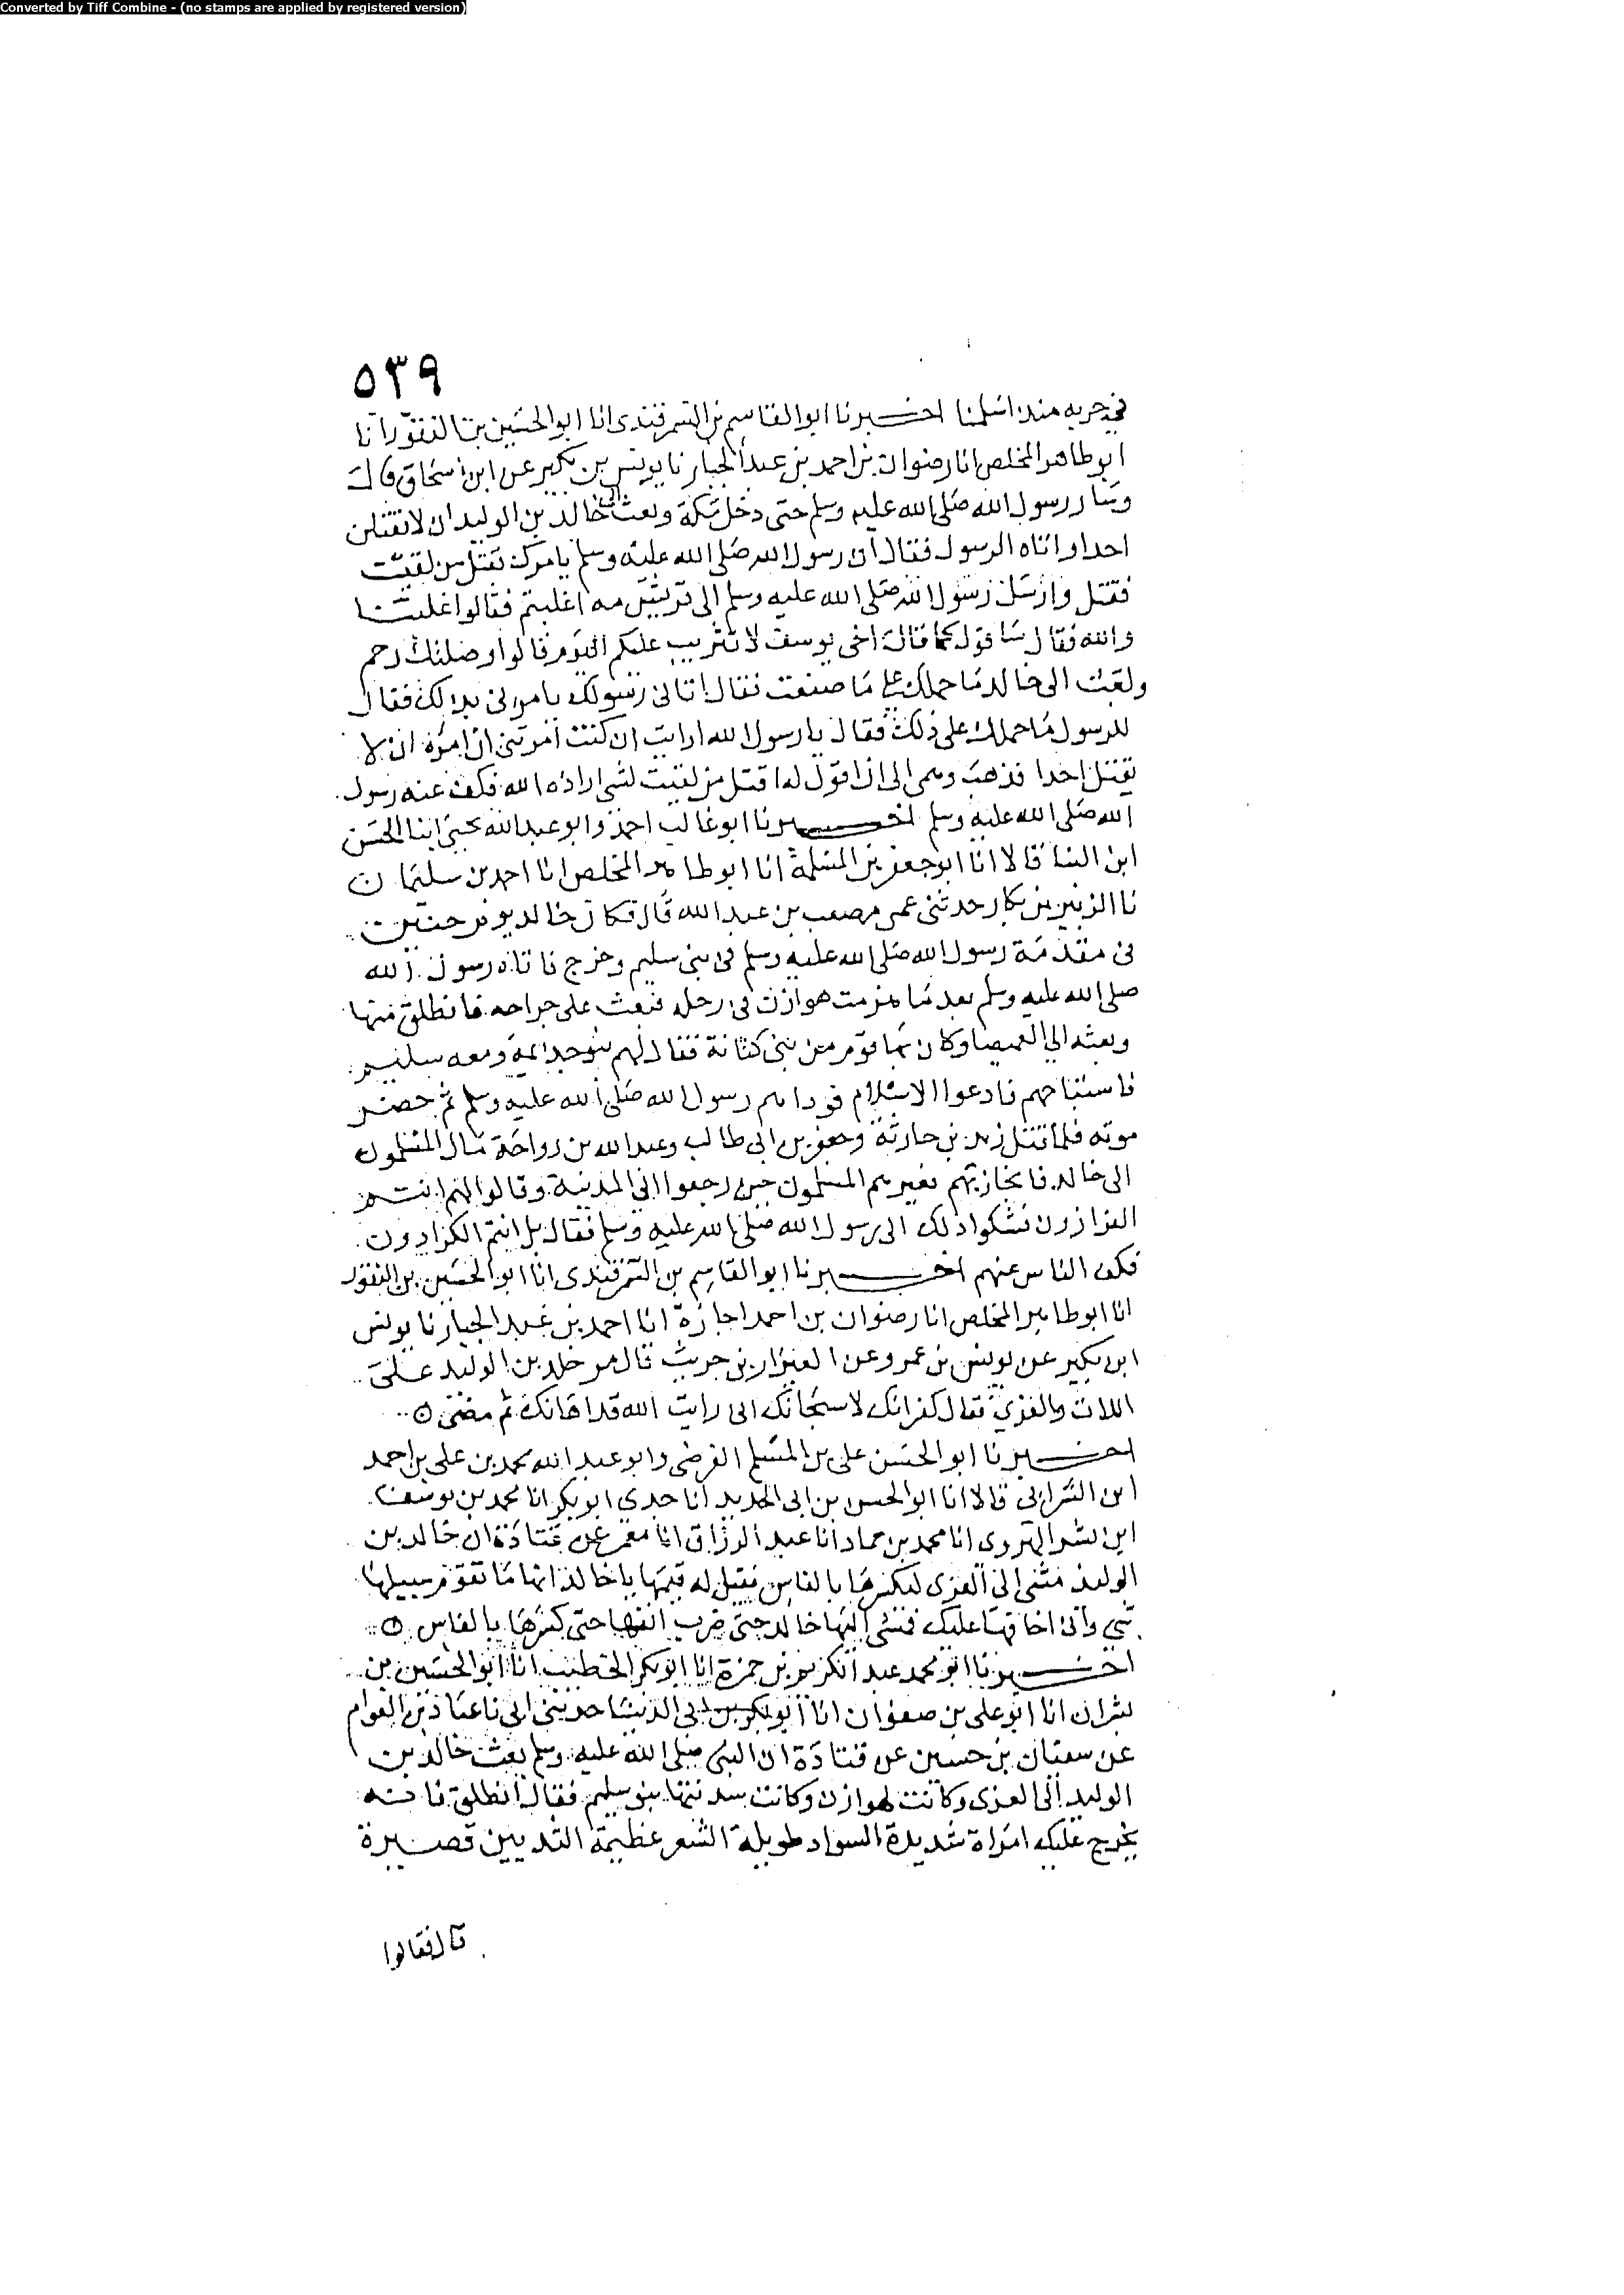 Converted by Tiff Combine - (no stamps are applied by registered version)
٥٣٩
في حربه منذ اسلمنا اخبرنا ابو القاسم بن السمرقندى انا ابو الحسين بن النقور انا
ابو طاهر المخلص انا رضوان بن احمد بن عبد الجبار نا يونس بن بكير عن ابن اسحاق قال
وسار رسول الله صلى الله عليه وسلم حتى دخل مكة وبعث الى خالد بن الوليد ان لا تقتلن
احدا واتاه الرسول فقال ان رسول الله صلى الله عليه وسلم يامرك تقتل من لقيت
فقتل وارسل رسول الله صلى الله عليه وسلم الى قريش مه اغلبتم فقالوا غلبتنا
والله فقال ساقول كما قال اخى يوسف لا تثريب عليكم اليوم قالوا وصلتك رحم
وبعث الى خالد ما حملك على ما صنعت فقال اتانى رسولك يامرنى بذلك فقال
للرسول ما حملك على ذلك فقال يا رسول الله ارايت ان كنت امرتنى ان امره ان لا
يقتل احدا فذهب وهمى الى ان اقول له اقتل من لقيت لشى اراده الله فكف عنه رسول
الله صلى الله عليه وسلم اخبرنا ابو غالب احمد وابو عبد الله يحيى ابنا الحسن
ابن البنا قالا انا ابو جعفر بن المسلمة انا ابو طاهر المخلص انا احمد بن سليمان
نا الزبير بن بكار حدثنى عمى مصعب بن عبد الله قال فكان خالد يوم حنين
فى مقدمة رسول الله صلى الله عليه وسلم فى بنى سليم وخرج فاتاه رسول الله
صلى الله عليه وسلم بعد ما هزمت هوازن فى رحله فنفث على جراحه فانطلق منها
وبعثه الى الغميصا وكان بها قوم من بنى كنانة فقال لهم بنو جذيمة ومعه سليم
فاستباحهم فادعوا الاسلام فوداهم رسول الله صلى الله عليه وسلم ثم حضر
موته فلما قتل زيد بن حارثة وجعفر بن ابى طالب وعبد الله بن رواحة مال المسلمون
الى خالد فانحاز بهم فعيرهم المسلمون حين رجعوا الى المدينة وقالوا لهم انتم
الفرارون فشكوا ذلك الى رسول الله صلى الله عليه وسلم فقال بل انتم الكرارون
فكف الناس عنهم اخبرنا ابو القاسم بن السمرقندى انا ابو الحسين بن النقور
انا ابو طاهر المخلص انا رضوان بن احمد اجازة انا احمد بن عبد الجبار نا يونس
ابن بكير عن يونس بن عمرو عن العيزار بن حريث قال مر خلد بن الوليد على
اللات والعزى فقال كفرانك لا سبحانك انى رايت الله قد اهانك ثم مضى ه
اخبرنا ابو الحسن على بن المسلم الفرضى وابو عبد الله محمد بن على بن احمد
ابن الشرابى قالا انا ابو الحسن بن ابى الحديد انا جدى ابو بكر انا محمد بن يوسف
ابن بشر الهروى انا محمد بن حماد انا عبد الرزاق انا معمر عن قتادة ان خالد بن
الوليد مشى الى العزى ليكسرها بالفاس فقيل له قيمها يا خالد انها ما تقوم سبيلها
شى وانى اخافها عليك فمشى اليها خالد حتى ضرب انفها حتى كسرها بالفاس ه
اخبرنا ابو محمد عبد الكريم بن حمزة انا ابو بكر الخطيب انا ابو الحسين بن
بشران انا ابو على بن صفوان انا ابو بكر بن ابى الدنيا حدثنى ابى نا عباد بن العوام
عن سفيان بن حسين عن قتادة ان النبى صلى الله عليه وسلم بعث خالد بن
الوليد الى العزى وكانت لهوازن وكانت سدنتها بنو سليم فقال انطلق فانه
يخرج عليك امراة شديدة السواد طويلة الشعر عظيمة الثديين قصيرة
قال فقالوا